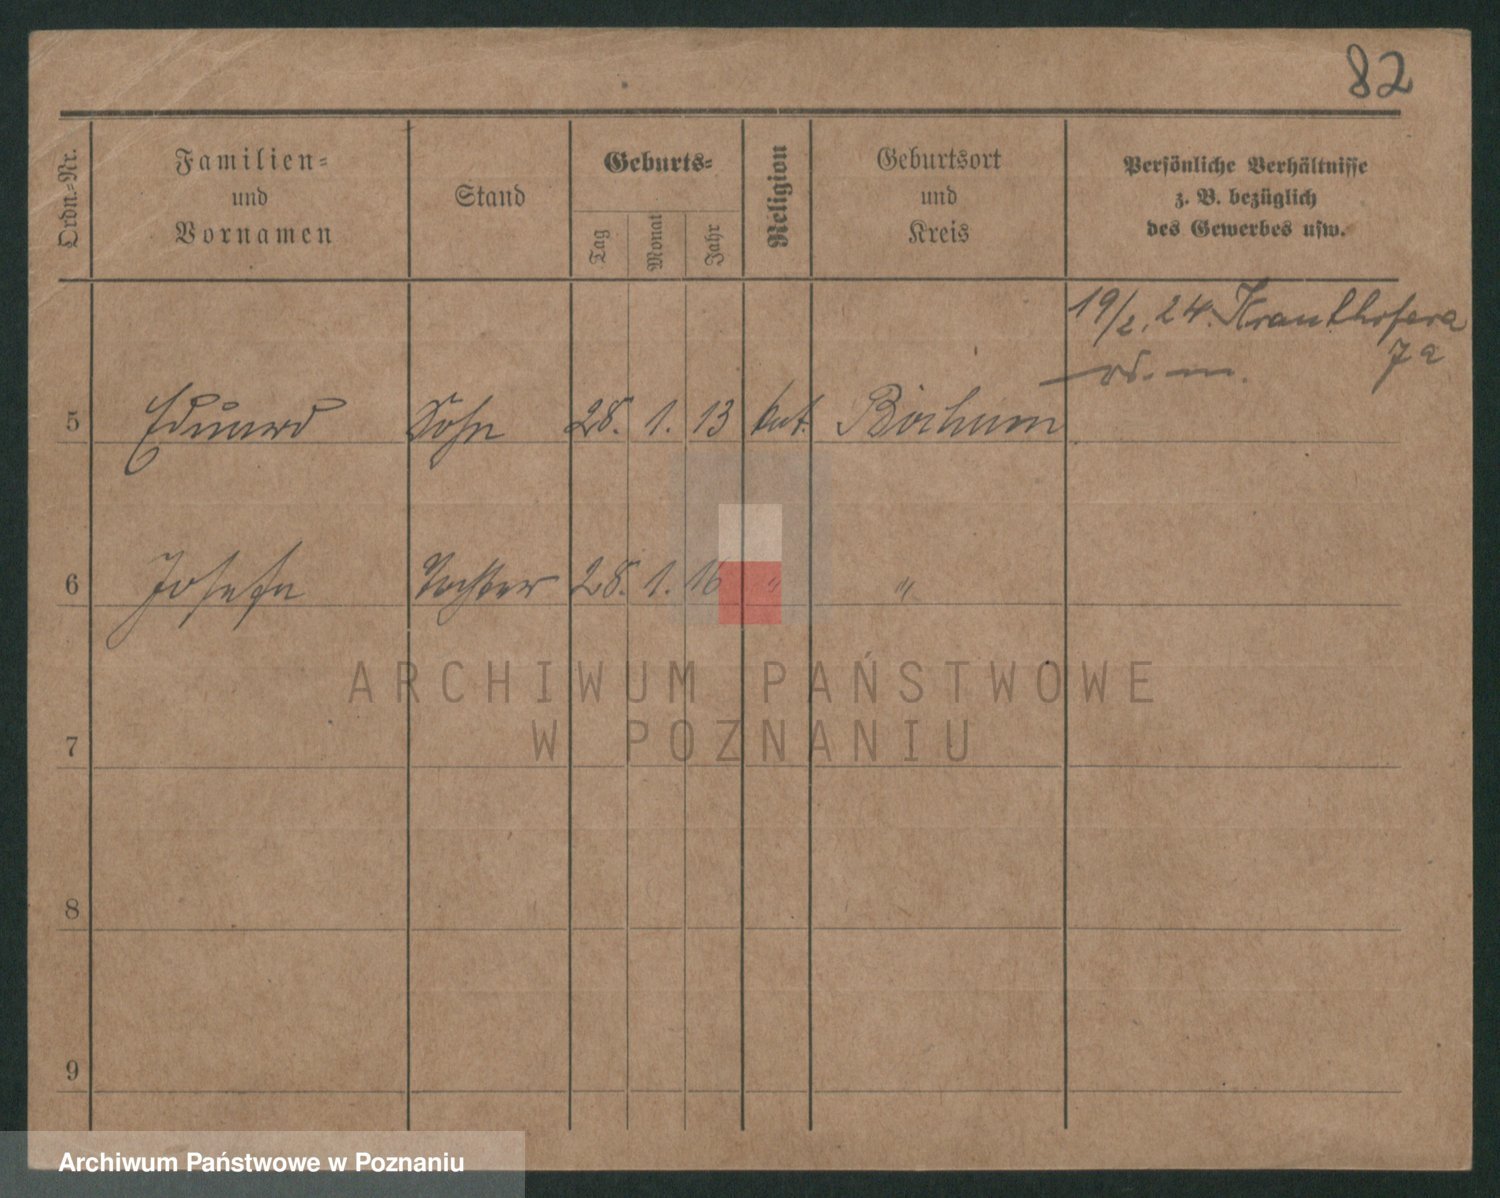 82
Ordn.-Nr.
Familien-
und
Vornamen
Stand
Geburts-
Tag
Monat
Jahr
Religion
Geburtsort
und
Kreis
Persönliche Verhältnisse
z. B. bezüglich
des Gewerbes usw.
19/2. 24. Krauthofera
7a
5 Eduard Sohn 28. 1. 13 kat. Bochum
6 Josefa Tochter 28. 1. 16 " "
ARCHIWUM PAŃSTWOWE
W POZNANIU
7
8
9
Archiwum Państwowe w Poznaniu